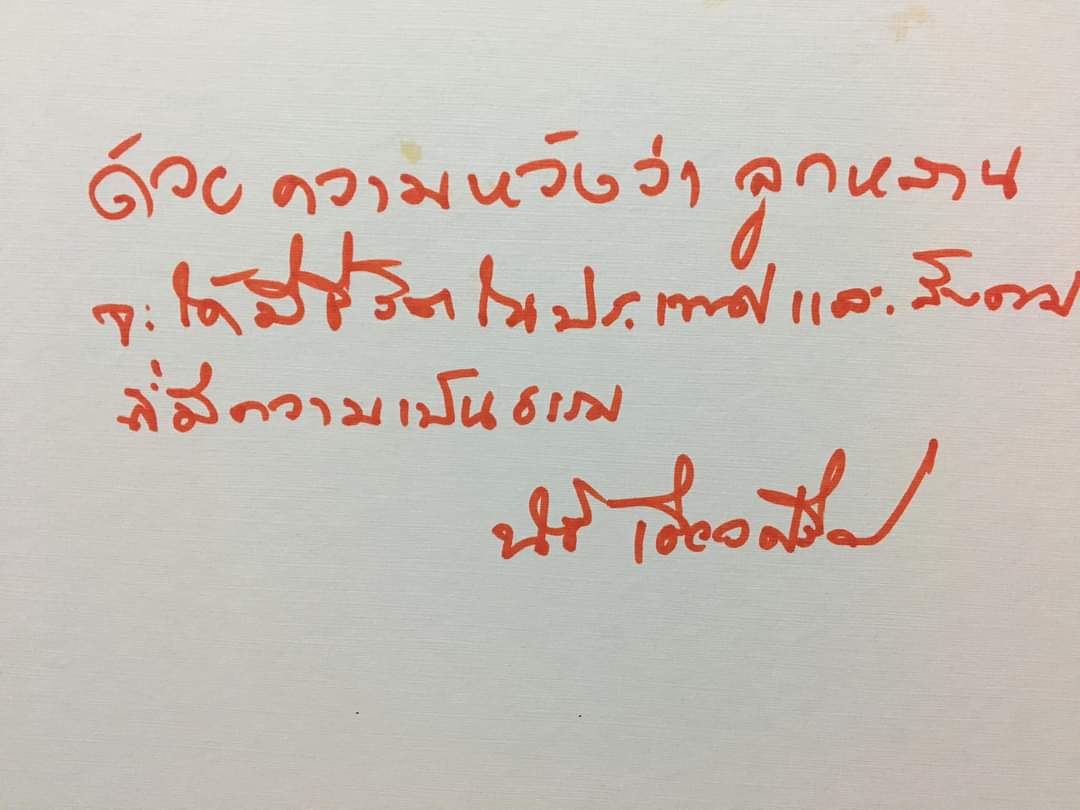 ด้วยความหวังว่า ลูกหลาน
จะได้มีชีวิตในประเทศและสังคม
ที่มีความเป็นธรรม